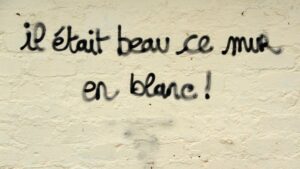 il était beau ce mur
en blanc !